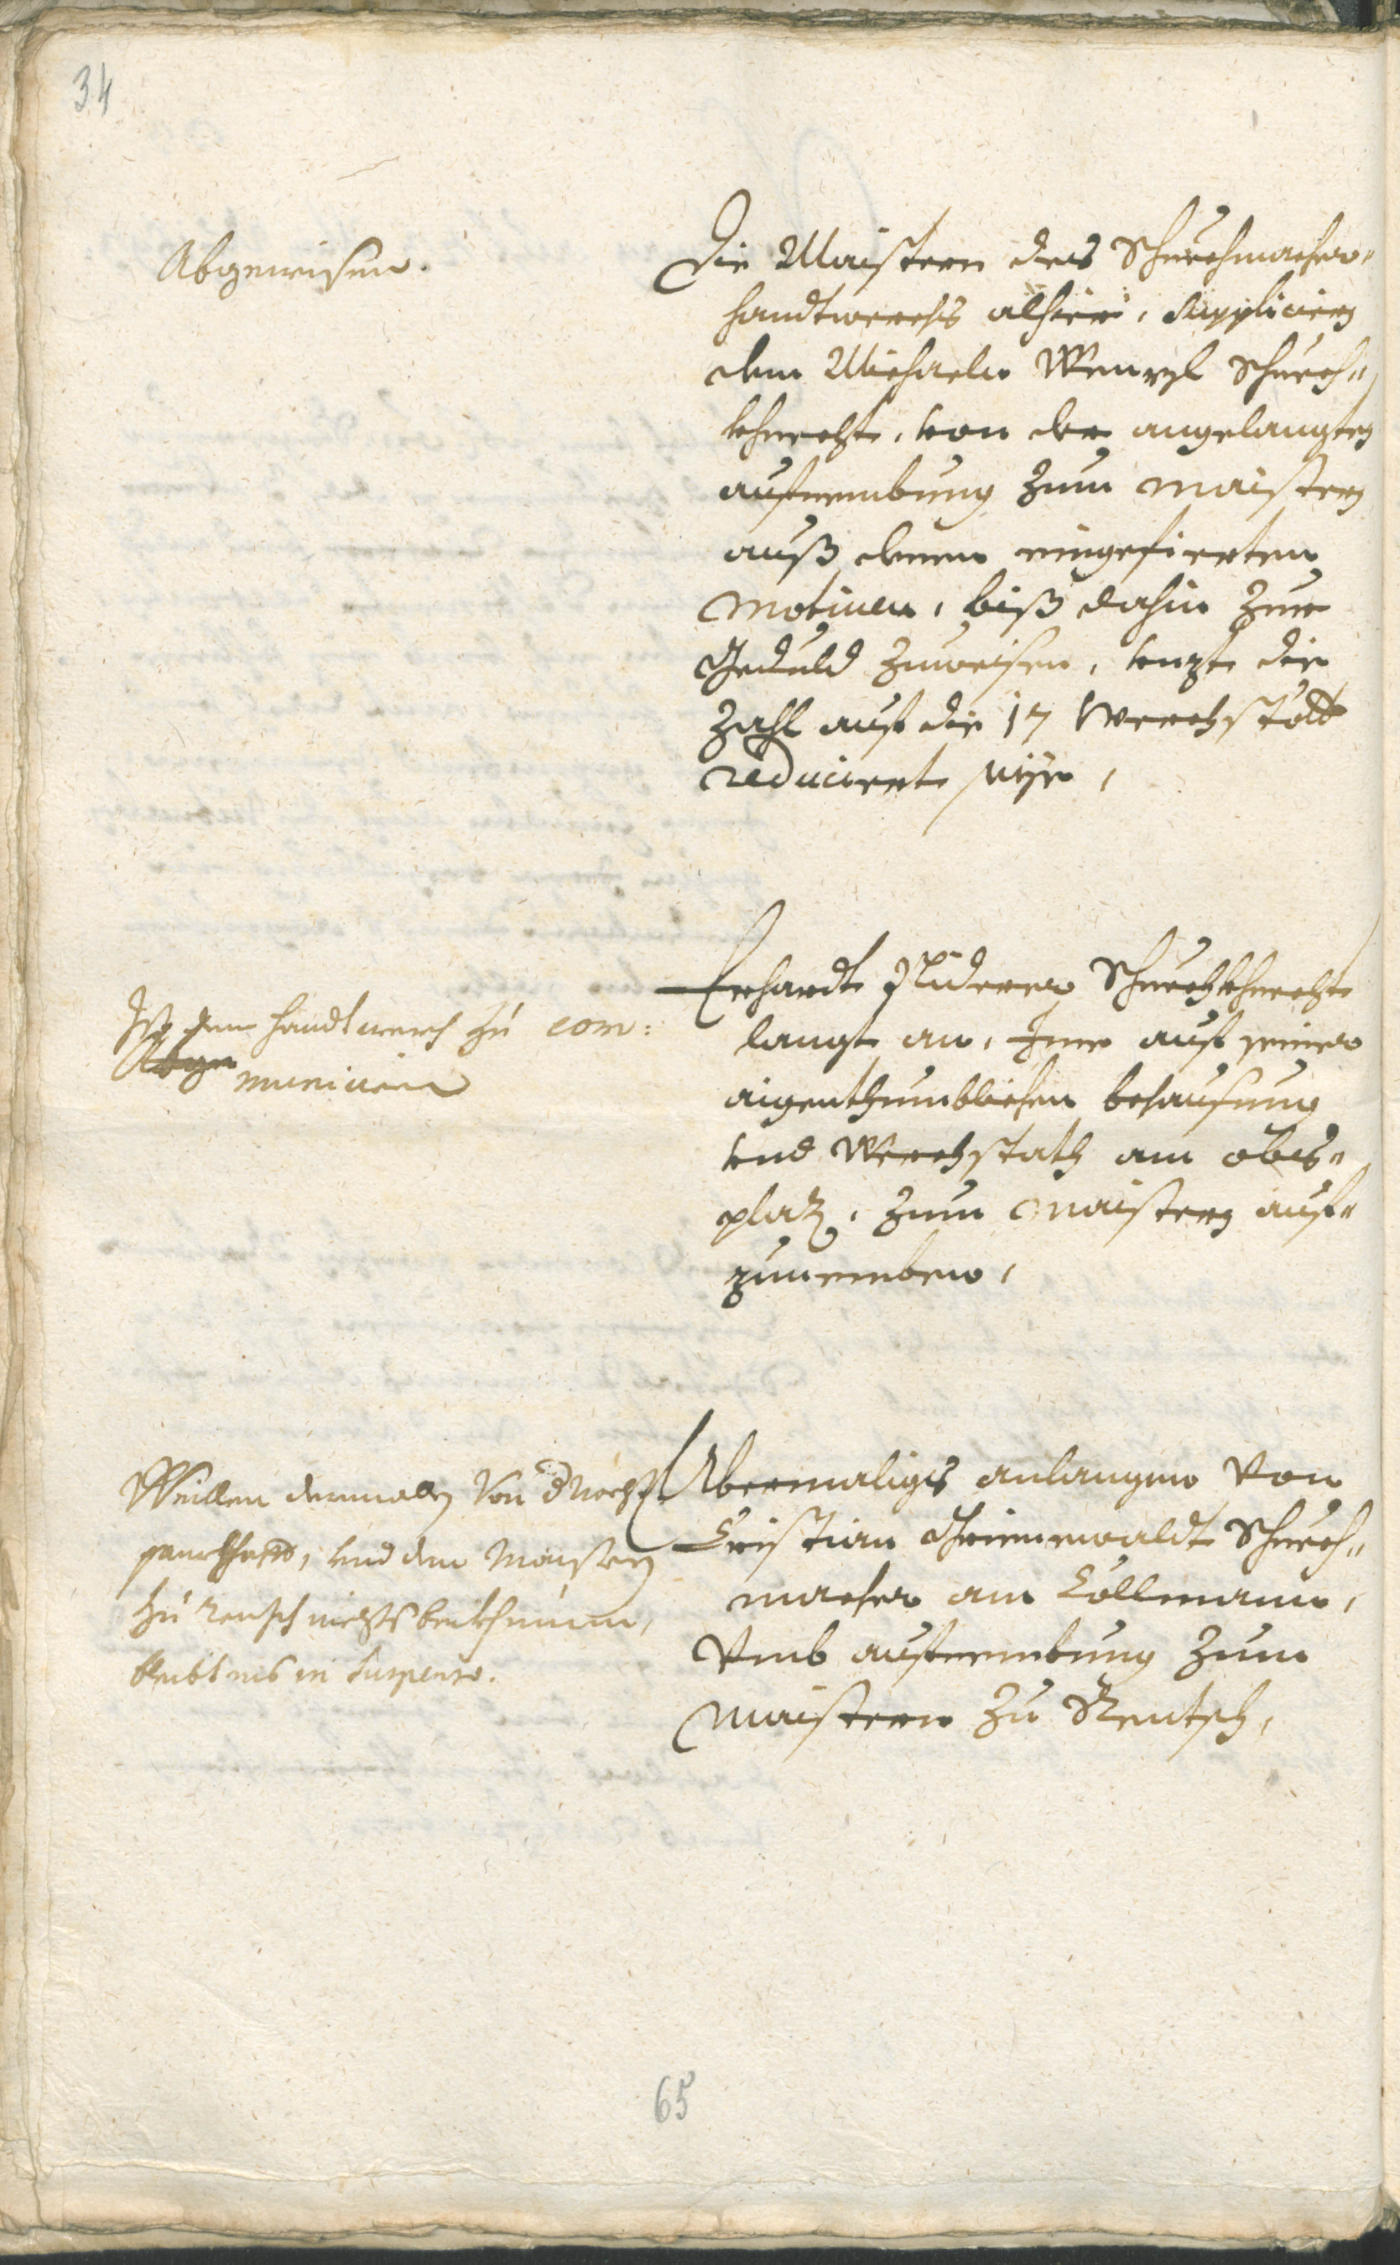 34
Abgewisen.
Die Maistern des Schuechmacher-
handtwerchs alhier, supplicirn
dem Michaeln Wenzl Schuech-
khnecht, von der angelangten
aufnembung zum Maistern
auß denen eingefierten
Motiven, biß dahin zur
Geduld zuweisen, unzt die
Zahl auf die 17 Werchstött
reducirt seye,
Ist dem handtwerch zu com:
Abge municirn
Erhardt Niderer Schuechkhnecht
langt an, Ime auf seiner
aigenthumblichen behausung
und Werchstath am obs-
plaz, zum Maistern auf-
zunemben,
Weillen dermallen von d
und den Maistern
zu Rentsch nichts
bleibt es in suspenso.
Abermaliges anlangen von
Cristian Schuech-
macher am Collmann,
Umb aufnembung zum
Maistern zu Rentsch,
65